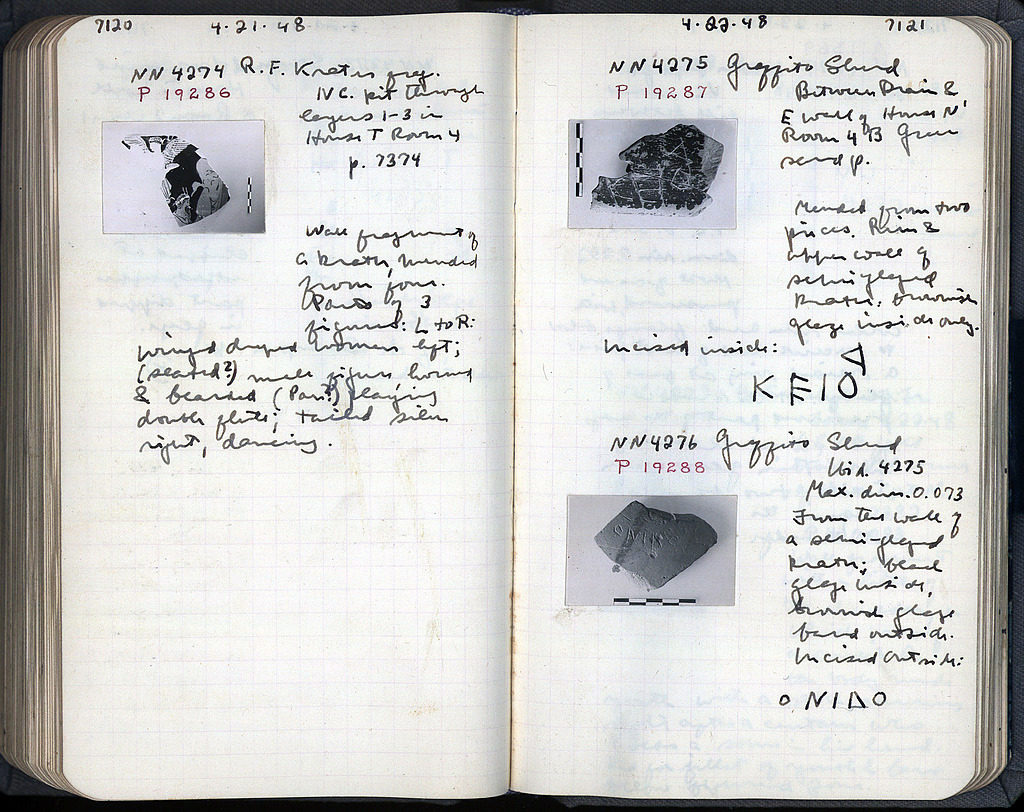 7120 4-21-48
NN 4274 R.F. Krater frag.
P 19286 IV C. pit through
layers 1-3 in
House T Room 4
p. 7374
Wall fragment of
a krater, mended
from four.
Parts of 3
figures: L to R:
winged draped woman left;
(seated?) male figure horned
& bearded (Pan?) playing
double flute; tailed silen
right, dancing.
4-22-48 7121
NN 4275 Graffito Sherd
P 19287 Between Drain &
E wall of House N'
Room 4 B
sand p.
Mended from two
pieces. Rim &
upper wall of
semi-glazed
krater: brownish
glaze inside only.
Incised inside:
Δ
ΚΕΙΟ
NN 4276 Graffito Sherd
P 19288 Ibid. 4275
Max. dim. 0.073
From the wall of
a semi-glazed
krater; black
glaze inside,
brownish glaze
band outside.
Incised outside:
ΟΝΙΔΟ